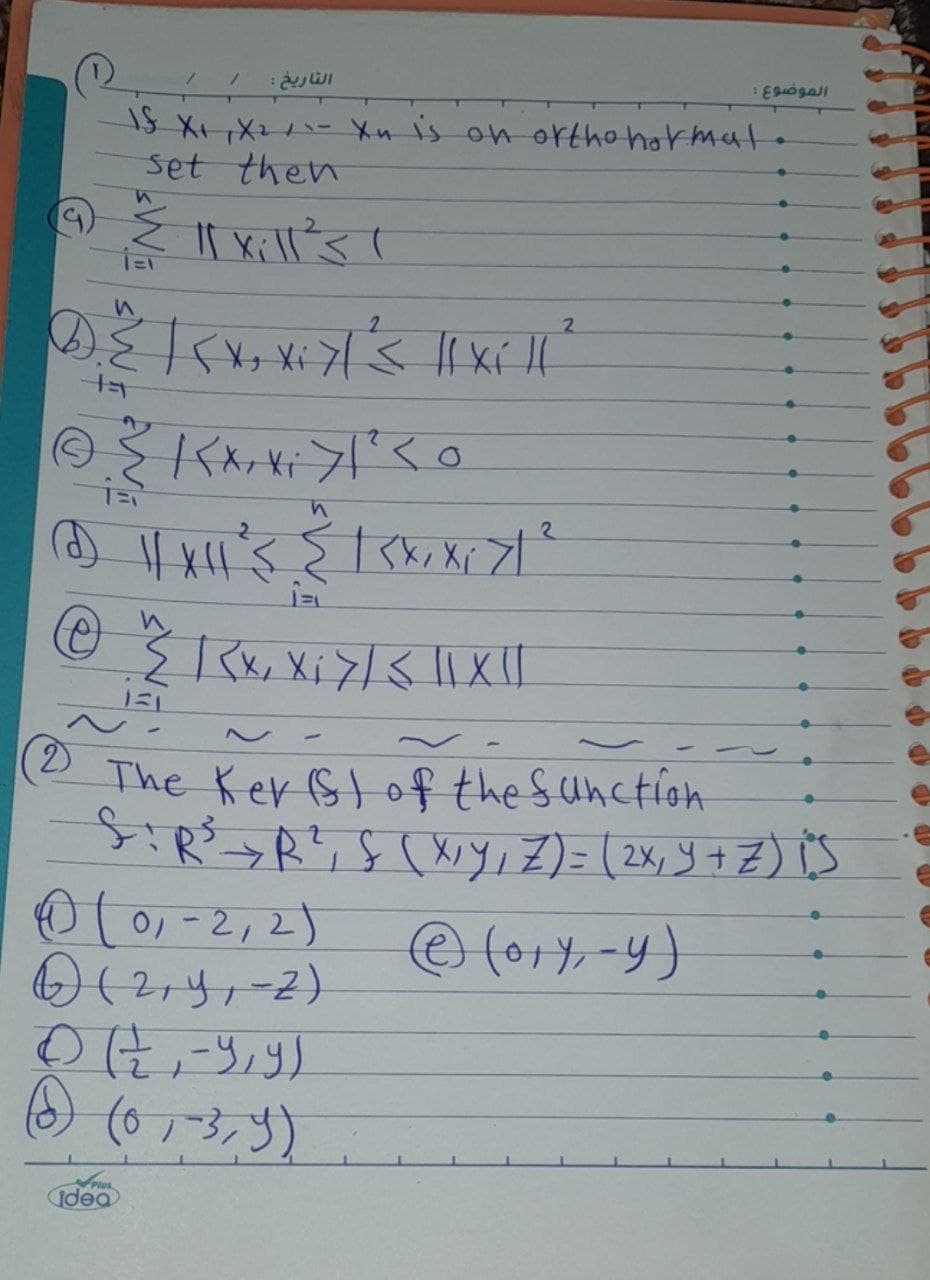 ① التاريخ: / / الموضوع:
If x₁, x₂, ... xₙ is on orthonormal
set then
ⓐ n∑i=1 ‖xi‖² ≤ 1
ⓑ n∑i=1 |<x, xi>|² ≤ ‖xi‖²
ⓒ n∑i=1 |<x, xi>|² < 0
ⓓ ‖x‖² ≤ n∑i=1 |<x, xi>|²
ⓔ n∑i=1 |<x, xi>| ≤ ‖x‖
② The Ker (f) of the function
f: R³ → R², f (x, y, z) = (2x, y + z) is
ⓐ (0, -2, 2) ⓔ (0, y, -y)
ⓑ (2, y, -z)
ⓒ (1/2, -y, y)
ⓓ (0, -3, y)
idea Plus